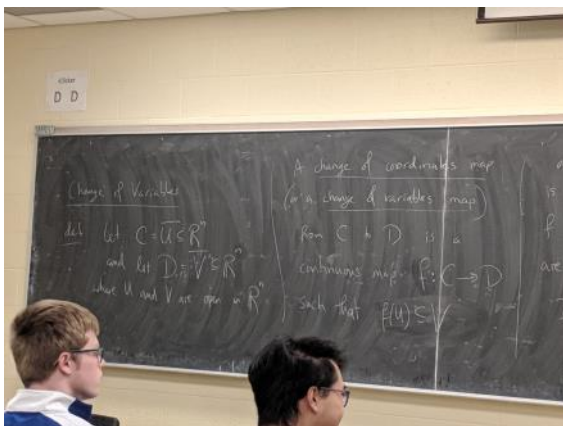 D D
Change of Variables
def Let C = U̅ ⊆ ℝⁿ
and let D = V̅ ⊆ ℝⁿ
where U and V are open in ℝⁿ
A change of coordinates map
(or a change of variables map)
from C to D is a
continuous map f: C → D
such that f(U) ⊆ V
is
f
are